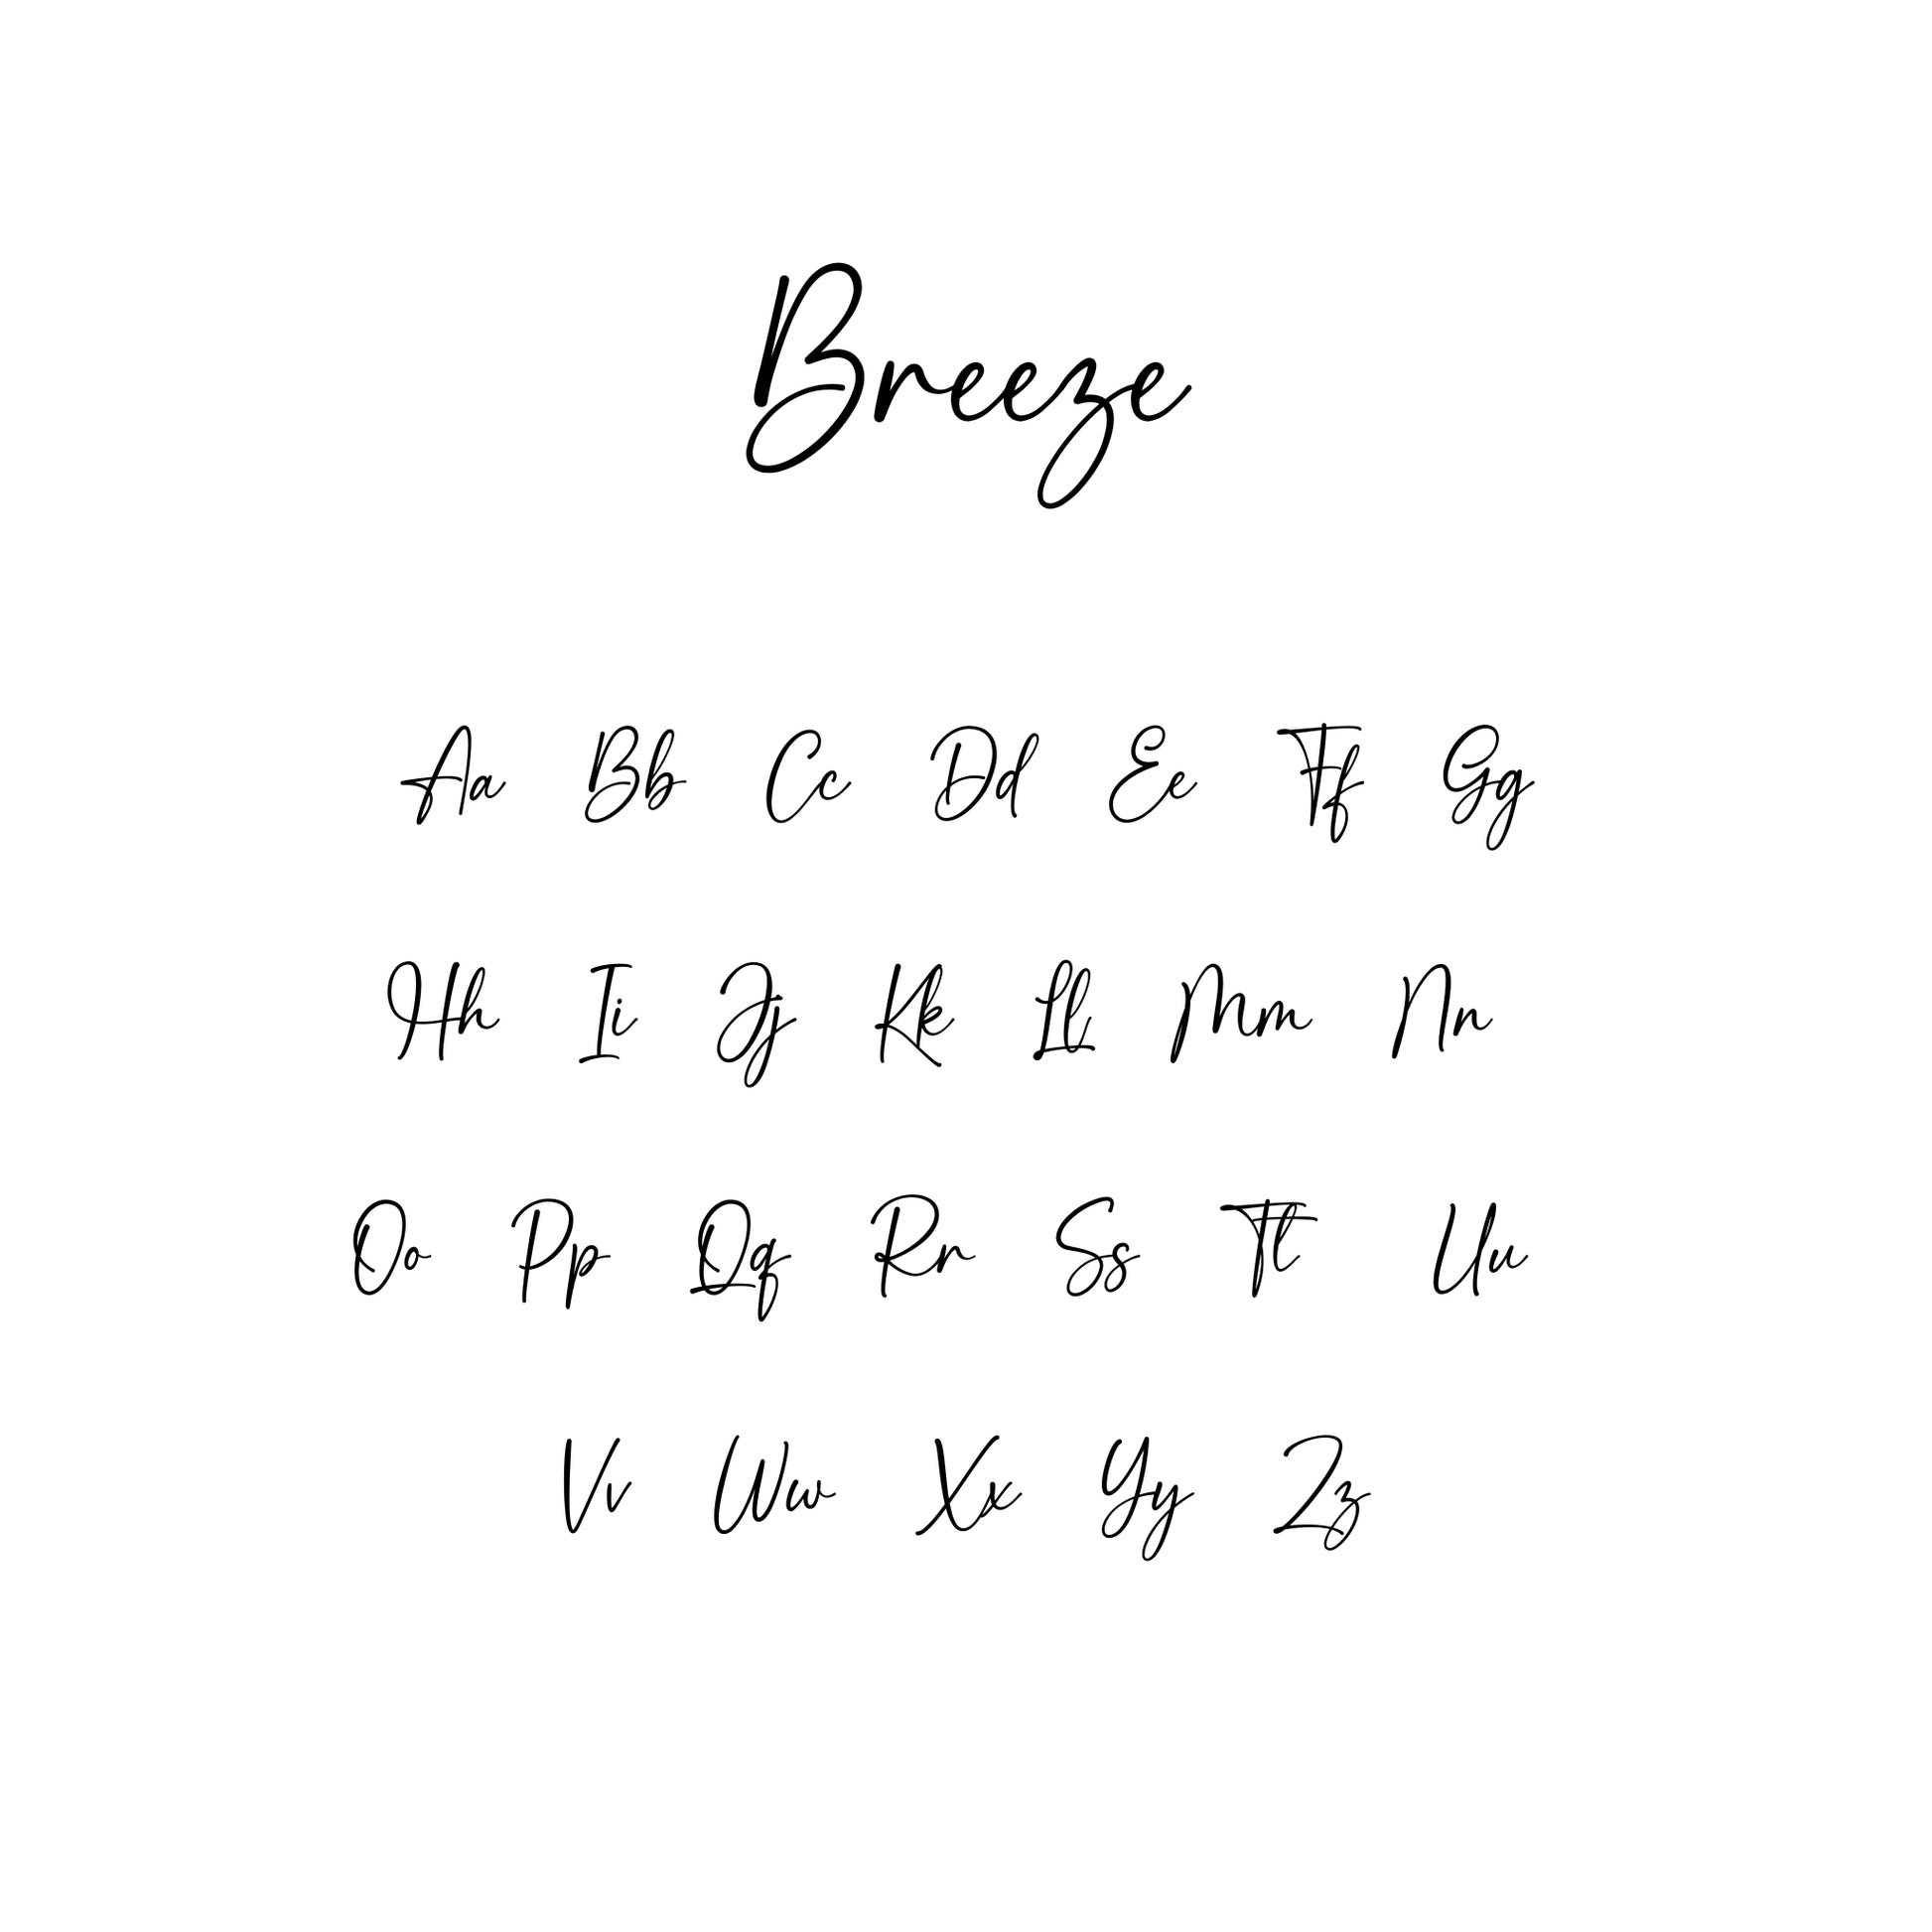 Breeze
Aa Bb Cc Dd Ee Ff Gg
Hh Ii Jj Kk Ll Mm Nn
Oo Pp Qq Rr Ss Tt Uu
Vv Ww Xx Yy Zz